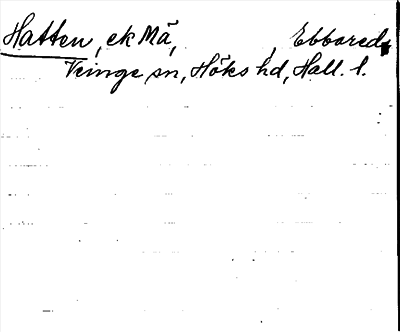 Hatten, ek Mä, Ebbared,
Veinge sn, Höks hd, Hall. l.